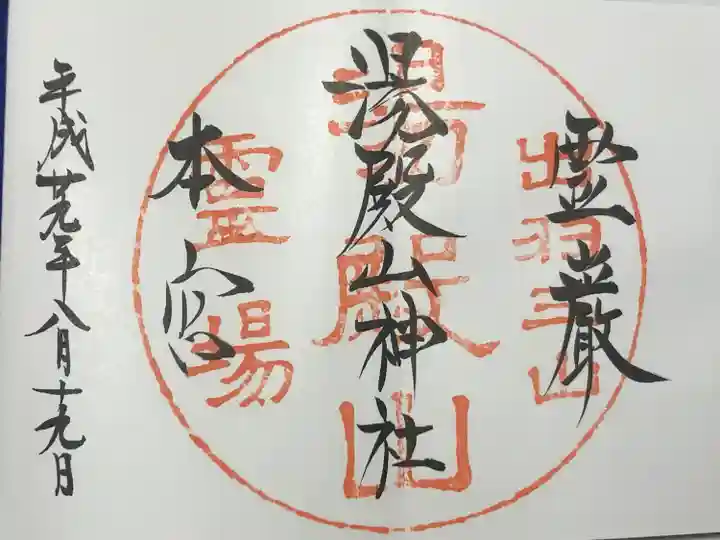 霊巌
湯殿山神社
本宮
平成廿九年八月十九日
出羽三山
湯殿山
霊場